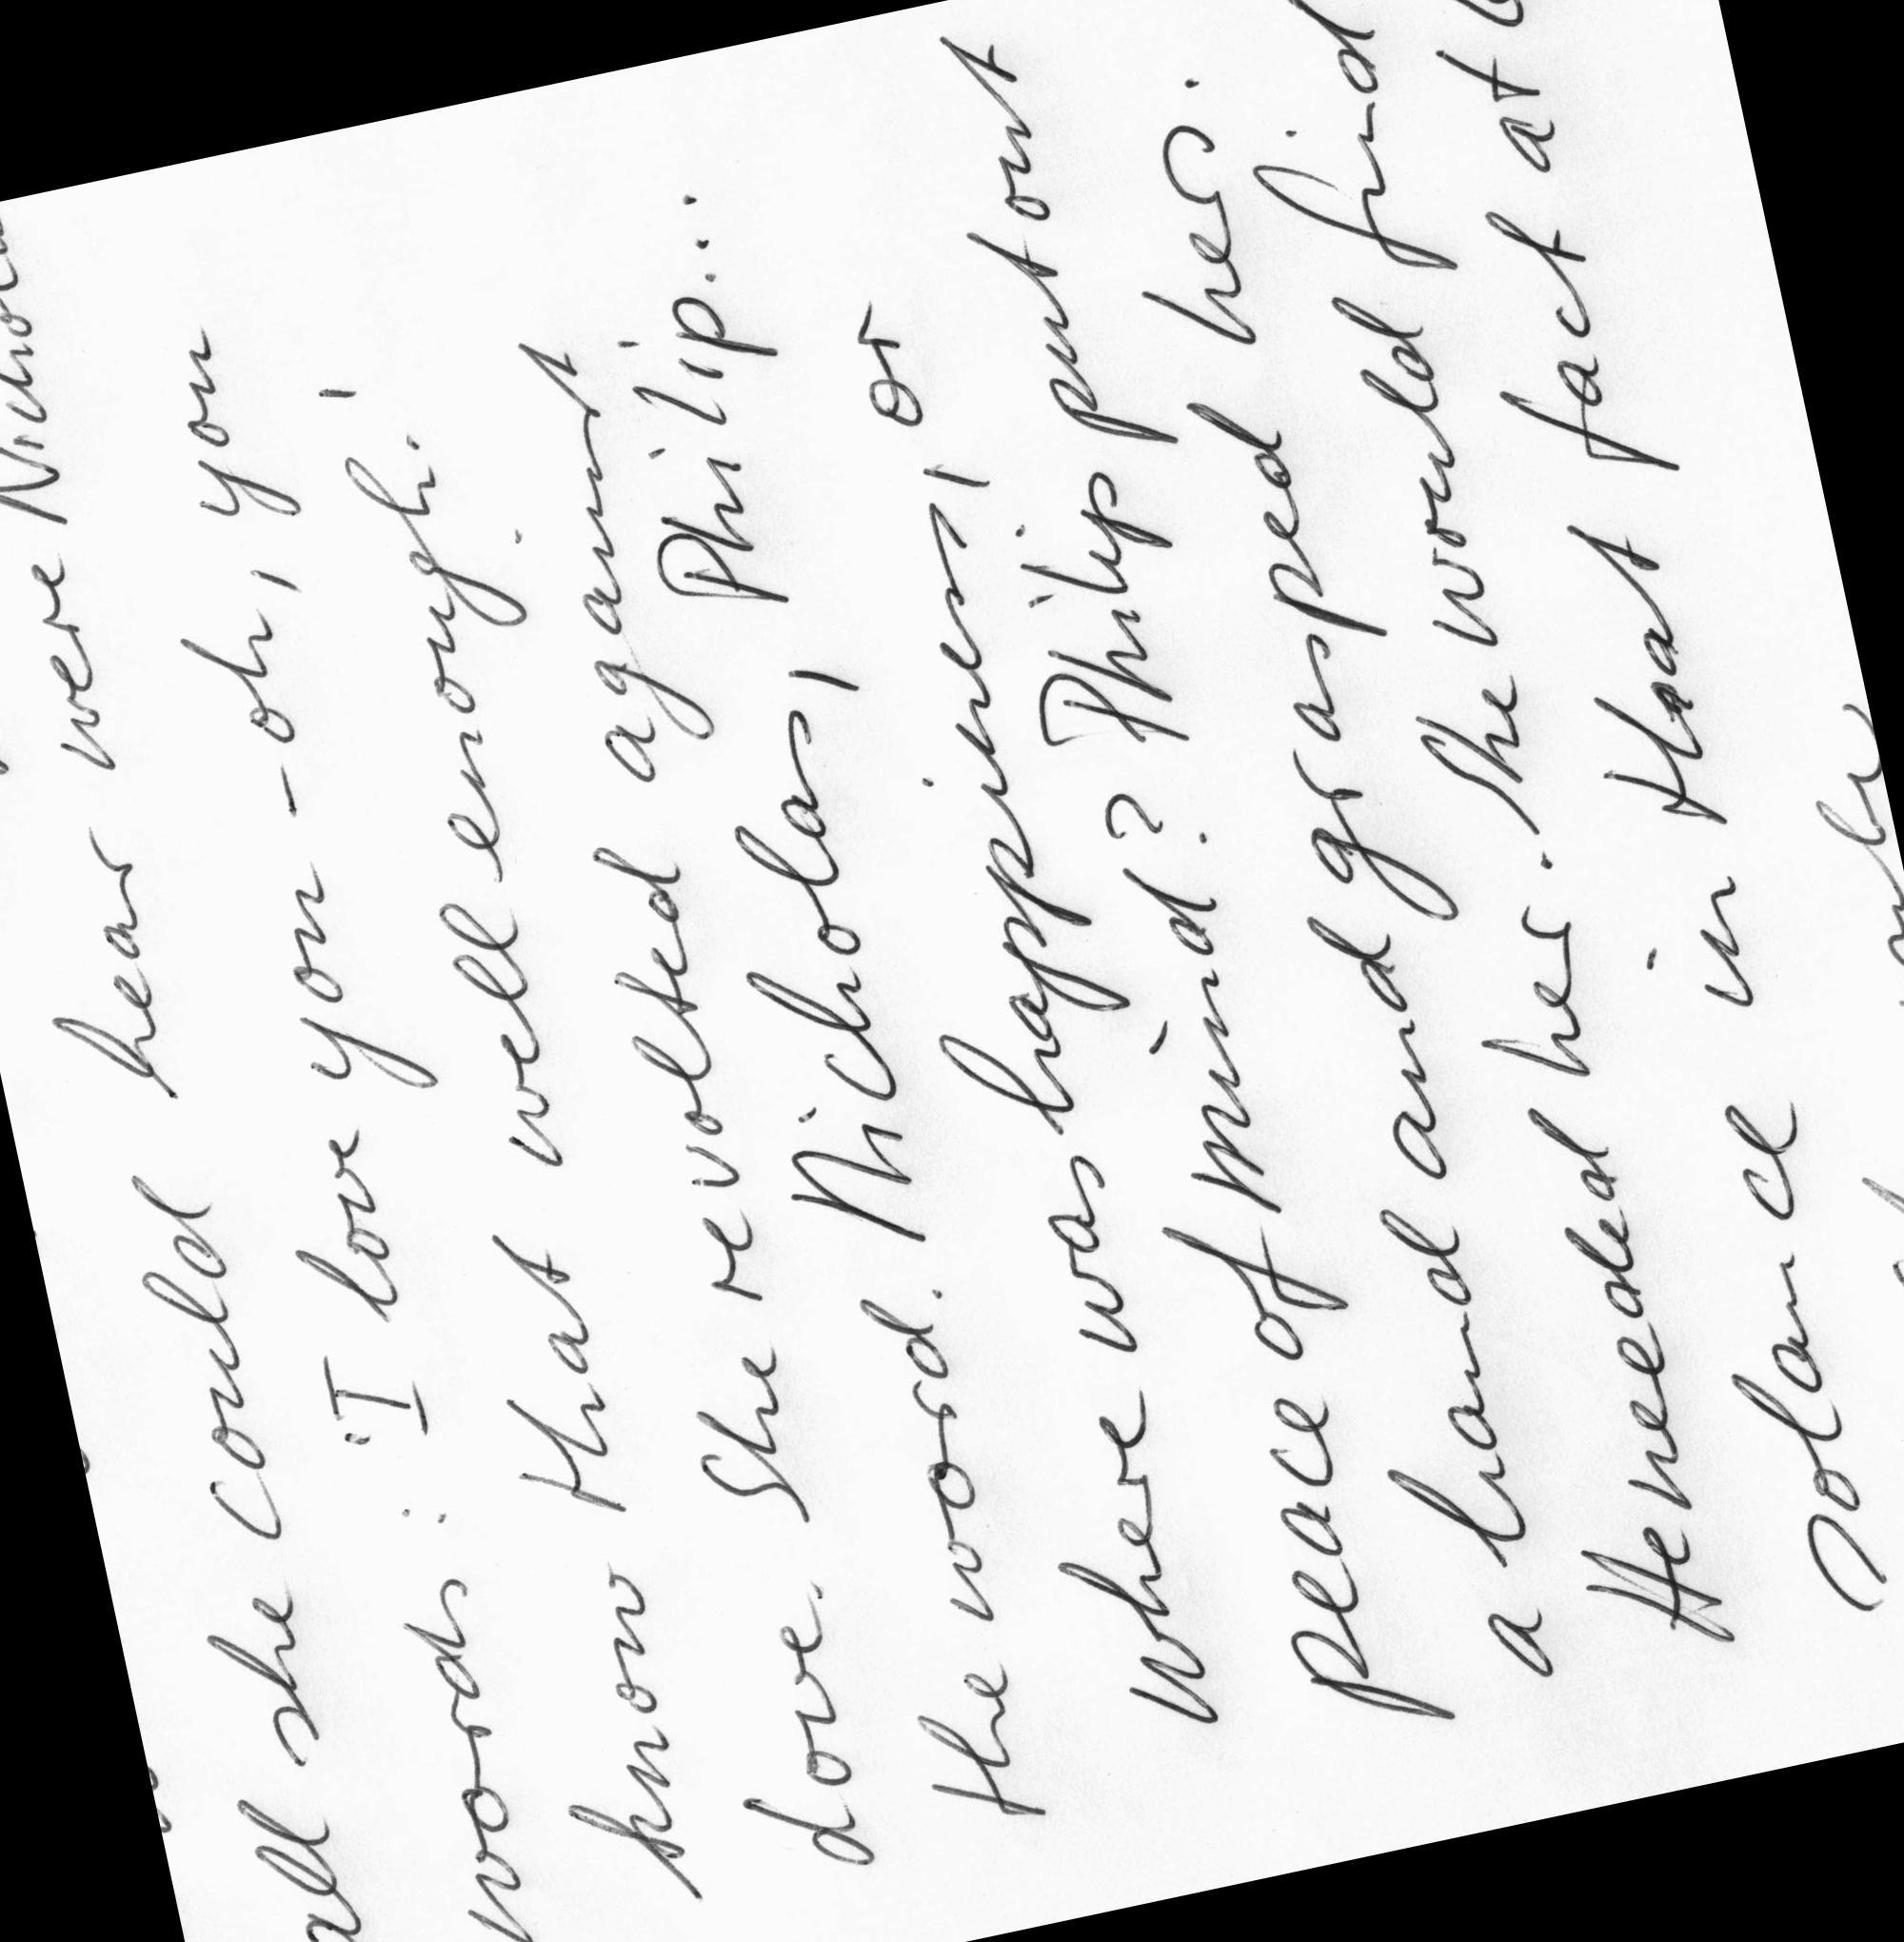 all she could hear were
words: 'I love you - oh, you
know that well enough.'
She revolted against
love. Nicholas, Philip...
the word. Nicholas, or
where was happiness,
peace of mind? Philip put out
a hand and grasped hers.
He needed her. She would find
solace in that fact at